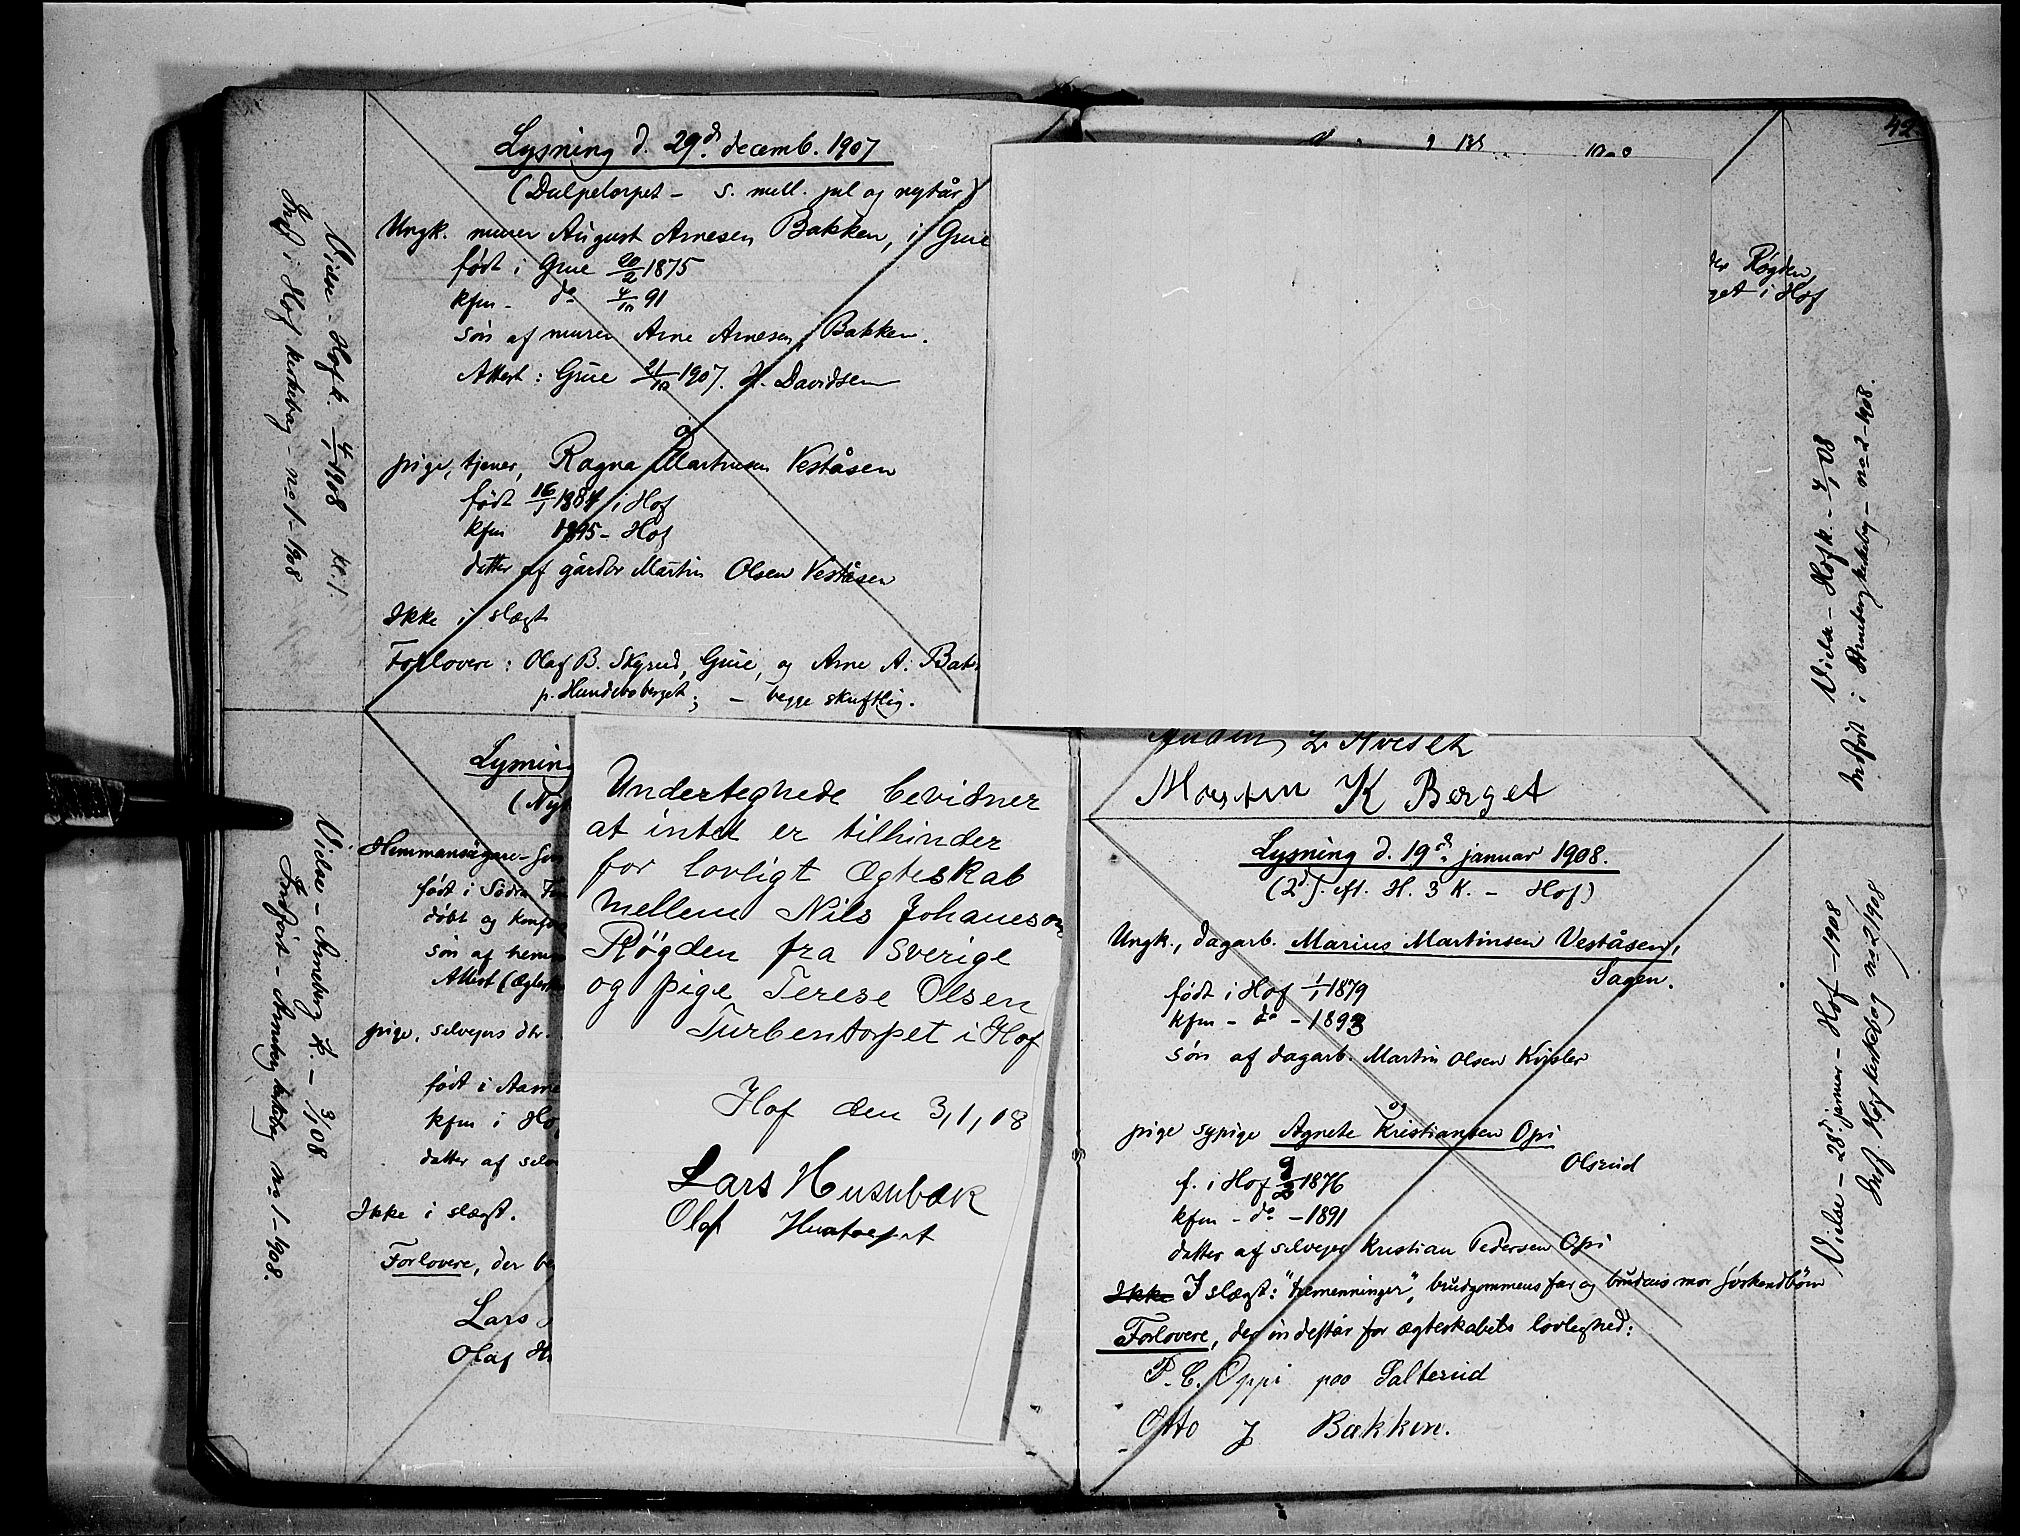 Lysning d. 29d. decemb. 1907
(Dulpetorpet - s. mell. jul og nytår)
Ungk. murer August Arnesen Bakken, i Grue
født i Grue 20/2 1875
kfm - do 4/10 91
søn af murer Arne Arnesen, Bakken.
Attest: Grue 21/12 1907. H. Davidsen
og
pige, tjener, Ragna Martinsen Veståsen
født 16/1 1884 i Hof
kfm 1895 - Hof
datter af gårdbr Martin Olsen Veståsen
Ikke i slægt
Forlovere: Olaf B. Skyrud, Grue, og Arne A. Bak
p. Hundeboberget; - begge skriftlig.
Vielse - Hof k. 4/1 1908 kr. 1
Indf. i Hof kirkebog - no 1 - 1908
Lysning
(Nyt
Hemmansägare-
født i Södra
døbt og konf
søn af hem
Attest (Ægtesk
pige, selveiers dtr.
født i Aasne
kfm i Ho
datter af selv
Ikke i slægt.
Forlovere, der be
Lars
Olaf
Vielse - Arneberg k. - 3/1 08
Indført - Arneberg kirkebog no 1 - 1908.
Undertegnede bevidner
at intet er tilhinder
for lovligt Ægteskab
mellem Nils Johaneson
Røgden fra Sverige
og pige Terese Olsen
Turbentorpet i Hof
Hof den 3,1,08
Lars Husubæk
Olof
42.
Røgden,
get i Hof
Morten K Berget
Vielse - Hof k. - 4/1 08
Indført i Arneberg kirkebog - no 2 - 1908.
Lysning d. 19d. januar 1908.
(2d S. eft. H. 3 K. - Hof)
Ungk., dagarb. Marius Martinsen Veståsen,
Sagen.
født i Hof 1/1 1879
kfm - do - 1893
søn af dagarb. Martin Olsen Kvisler
og
pige sypige Agnete Kristiansen Opi
Olsrud
f. i Hof 1876
kfm - do - 1891
datter af selveger Kristian Pedersen Opi
Ikke I slægt: "tremenninger", brudgommens far og brudens mor søskendbørn
Forlovere, der indestår for ægteskabets lovlighed:
P. C. Oppi paa Salterud
Otto J Bækken.
Vielse - 28d januar - Hof - 1908
Indf. Hof kirkebog no 2/1908